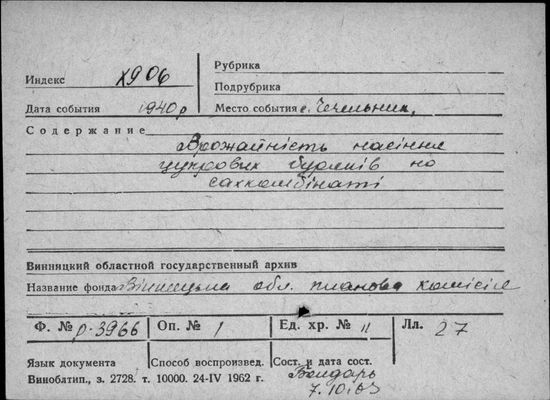 Рубрика
Индекс х906
Подрубрика
Дата события 1940 р
Место события с. Чечельник,
Содержание
Врожайність насіння
цукрових буряків на
сахкомбінаті
Винняцкий областной государственный архив
Название фонда Вінницька обл. планова комісія
Ф. № р-3966 Оп. № 1 Ед. хр. № 11 Лл. 27
Язык документа Способ воспроизвед. Сост. и дата сост.
Виноблтип., з. 2728. т. 10000. 24-IV 1962 г. Бондарь
7.10.63